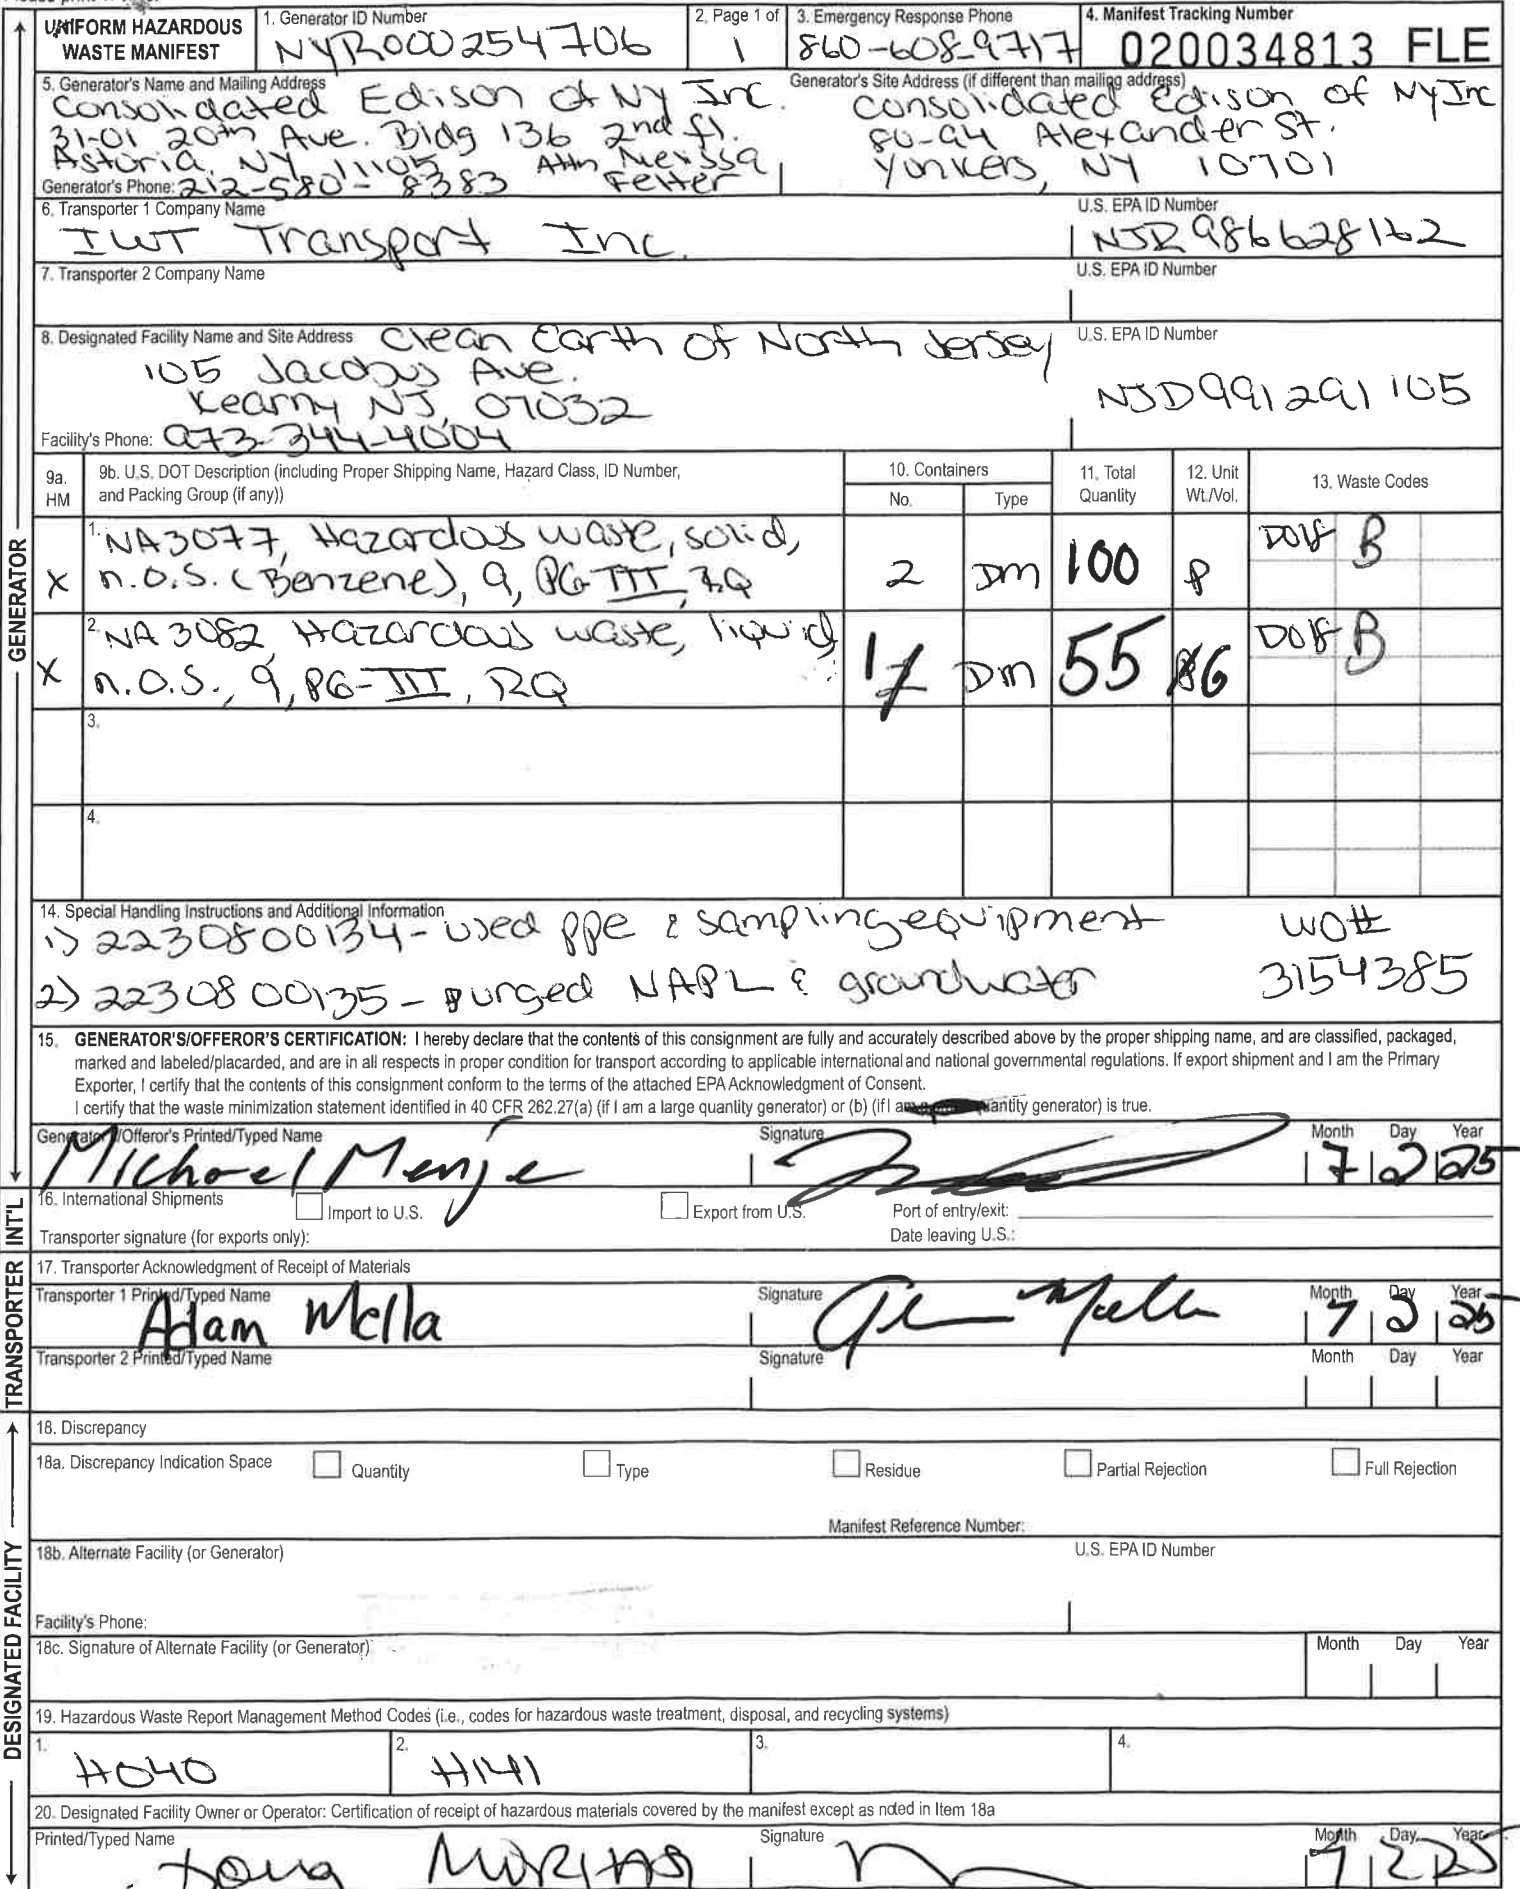 UNIFORM HAZARDOUS
WASTE MANIFEST
1. Generator ID Number
NYR000254706
2. Page 1 of
1
3. Emergency Response Phone
860-608-9717
4. Manifest Tracking Number
020034813 FLE
5. Generator's Name and Mailing Address
Consolidated Edison of NY Inc.
31-01 20th Ave. Bldg 136 2nd fl.
Astoria, NY 11105 Attn Melissa
Fetter
Generator's Phone: 212-580-8383
Generator's Site Address (if different than mailing address)
Consolidated Edison of NY Inc
80-94 Alexander St.
Yonkers, NY 10701
6. Transporter 1 Company Name
IWT Transport Inc.
U.S. EPA ID Number
NJR986628162
7. Transporter 2 Company Name
U.S. EPA ID Number
8. Designated Facility Name and Site Address Clean Earth of North Jersey
105 Jacobus Ave.
Kearny NJ, 07032
Facility's Phone: 973-344-4004
U.S. EPA ID Number
NJD991291105
9a.
HM
9b. U.S. DOT Description (including Proper Shipping Name, Hazard Class, ID Number,
and Packing Group (if any))
10. Containers
No.
Type
11. Total
Quantity
12. Unit
Wt./Vol.
13. Waste Codes
X
1. NA3077, Hazardous waste, solid,
n.o.s. (Benzene), 9, PG-III, RQ
2 DM 100 P D018 B
X
2. NA3082, Hazardous waste, liquid
n.o.s., 9, PG-III, RQ
1 DM 55 G D018 B
3.
4.
14. Special Handling Instructions and Additional Information
1) 2230800134 - used ppe & sampling equipment
2) 2230800135 - purged NAPL & groundwater
WO#
3154385
15. GENERATOR'S/OFFEROR'S CERTIFICATION: I hereby declare that the contents of this consignment are fully and accurately described above by the proper shipping name, and are classified, packaged,
marked and labeled/placarded, and are in all respects in proper condition for transport according to applicable international and national governmental regulations. If export shipment and I am the Primary
Exporter, I certify that the contents of this consignment conform to the terms of the attached EPA Acknowledgment of Consent.
I certify that the waste minimization statement identified in 40 CFR 262.27(a) (if I am a large quantity generator) or (b) (if I am generator) is true.
Generator's/Offeror's Printed/Typed Name
Michael
Signature
Month Day Year
7 2 25
16. International Shipments
Import to U.S.
Export from U.S.
Port of entry/exit:
Date leaving U.S.:
Transporter signature (for exports only):
17. Transporter Acknowledgment of Receipt of Materials
Transporter 1 Printed/Typed Name
Adam Mella
Signature
Month Day Year
7 2 25
Transporter 2 Printed/Typed Name
Signature
Month Day Year
18. Discrepancy
18a. Discrepancy Indication Space
Quantity
Type
Residue
Partial Rejection
Full Rejection
Manifest Reference Number:
18b. Alternate Facility (or Generator)
U.S. EPA ID Number
Facility's Phone:
18c. Signature of Alternate Facility (or Generator)
Month Day Year
19. Hazardous Waste Report Management Method Codes (i.e., codes for hazardous waste treatment, disposal, and recycling systems)
1. H040
2. H141
3.
4.
20. Designated Facility Owner or Operator: Certification of receipt of hazardous materials covered by the manifest except as noted in Item 18a
Printed/Typed Name
Signature
Month Day Year
7 2 25
GENERATOR
INT'L
TRANSPORTER
DESIGNATED FACILITY